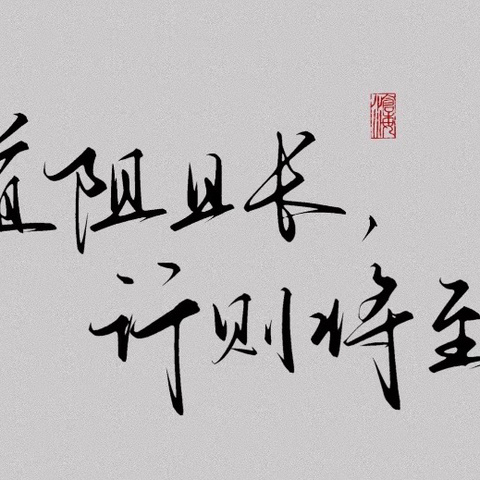 滄海
道阻且长，
行则将至